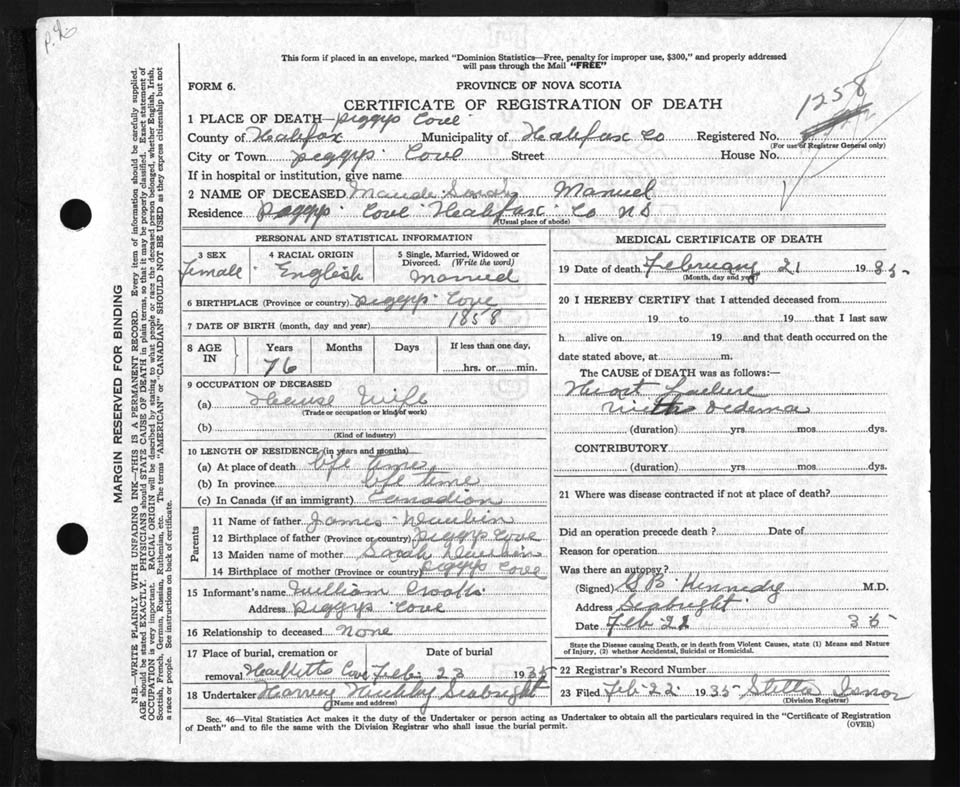 This form if placed in an envelope, marked "Dominion Statistics—Free, penalty for improper use, $300," and properly addressed
will pass through the Mail "FREE"
FORM 6.
PROVINCE OF NOVA SCOTIA
CERTIFICATE OF REGISTRATION OF DEATH
1258
1 PLACE OF DEATH— Peggys Cove
County of Halifax Municipality of Halifax Co Registered No.
(For use of Registrar General only)
City or Town Peggys Cove Street House No.
If in hospital or institution, give name
2 NAME OF DECEASED Maude Manuel
Residence Peggys Cove Halifax Co NS
(Usual place of abode)
PERSONAL AND STATISTICAL INFORMATION
3 SEX 4 RACIAL ORIGIN 5 Single, Married, Widowed or
Divorced. (Write the word)
Female English Married
6 BIRTHPLACE (Province or country) Peggys Cove
7 DATE OF BIRTH (month, day and year) 1858
8 AGE IN Years Months Days If less than one day,
76 hrs. or min.
9 OCCUPATION OF DECEASED
(a) House Wife
(Trade or occupation or kind of work)
(b)
(Kind of industry)
10 LENGTH OF RESIDENCE (in years and months)
(a) At place of death life time
(b) In province life time
(c) In Canada (if an immigrant) Canadian
Parents
11 Name of father James
12 Birthplace of father (Province or country) Peggys Cove
13 Maiden name of mother Sarah
14 Birthplace of mother (Province or country) Peggys Cove
15 Informant's name William Crooks
Address Peggys Cove
16 Relationship to deceased None
17 Place of burial, cremation or Date of burial
removal Cove Feb 23 1935
18 Undertaker Harvey Seabright
(Name and address)
MEDICAL CERTIFICATE OF DEATH
19 Date of death February 21 1935
(Month, day and year)
20 I HEREBY CERTIFY that I attended deceased from
19 to 19 that I last saw
h alive on 19 and that death occurred on the
date stated above, at m.
The CAUSE of DEATH was as follows:—
Heart failure
with oedema
(duration) yrs mos dys.
CONTRIBUTORY
(duration) yrs mos dys.
21 Where was disease contracted if not at place of death?
Did an operation precede death? Date of
Reason for operation
Was there an autopsy?
(Signed) G B Kennedy M.D.
Address Seabright
Date Feb 22 35
State the Disease causing Death, or in death from Violent Causes, state (1) Means and Nature
of Injury, (2) whether Accidental, Suicidal or Homicidal.
22 Registrar's Record Number
23 Filed Feb 22 1935 Stella Isnor
(Division Registrar)
Sec. 46—Vital Statistics Act makes it the duty of the Undertaker or person acting as Undertaker to obtain all the particulars required in the "Certificate of Registration
of Death" and to file the same with the Division Registrar who shall issue the burial permit.
(OVER)
MARGIN RESERVED FOR BINDING
N.B.—WRITE PLAINLY WITH UNFADING INK—THIS IS A PERMANENT RECORD. Every item of information should be carefully supplied.
AGE should be stated EXACTLY. PHYSICIANS should STATE CAUSE OF DEATH in plain terms, so that it may be properly classified. Exact statement of
OCCUPATION is very important. RACIAL ORIGIN will be described by stating to what people or race the deceased person belonged, whether English, Irish,
Scottish, French, German, Russian, Ruthenian, etc. The terms "AMERICAN" or "CANADIAN" SHOULD NOT BE USED as they express citizenship but not
a race or people. See instructions on back of certificate.